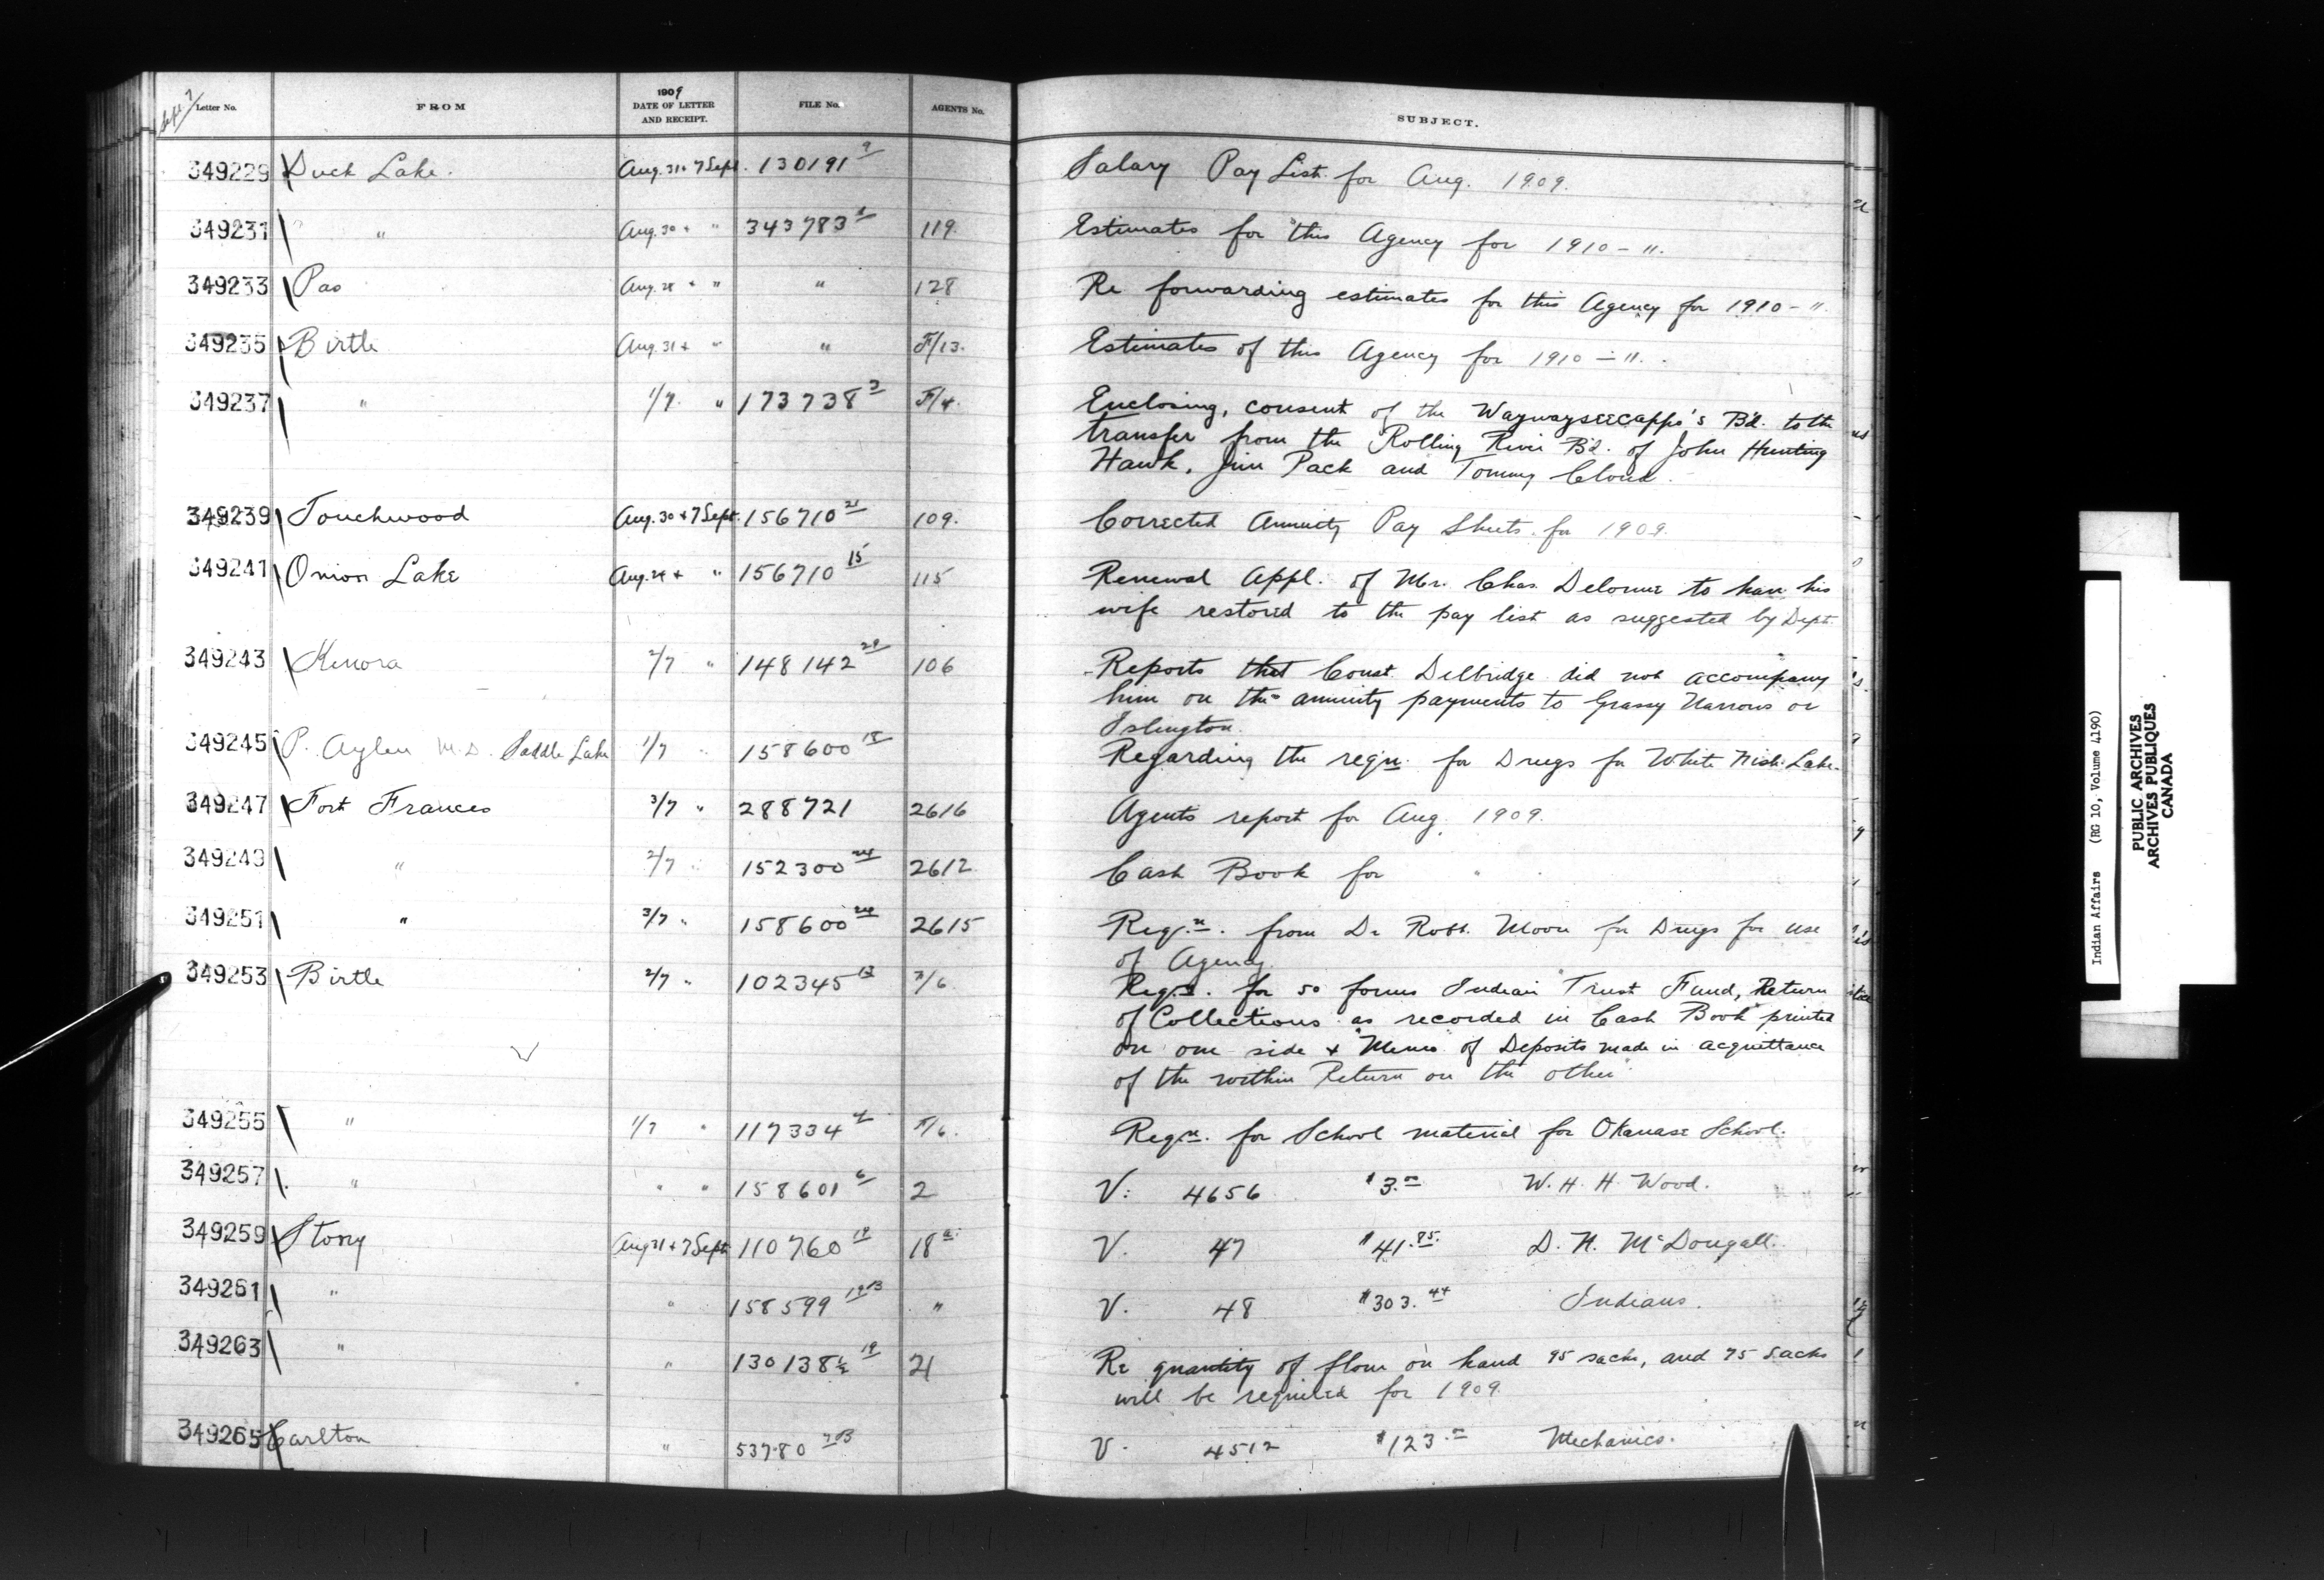 Sept 7
Letter No. FROM 1909 DATE OF LETTER AND RECEIPT. FILE No. AGENTS No. SUBJECT.
349229 Duck Lake. Aug. 31 + 7 Sept. 130191 9 Salary Pay List for Aug. 1909.
349231 " Aug. 30 + " 343783 1 119. Estimates for this Agency for 1910 - 11.
349233 Pas Aug. 28 + " " 128 Re forwarding estimates for this Agency for 1910 - 11.
349235 Birtle Aug. 31 + " " F/13. Estimates of this Agency for 1910 - 11.
349237 " 1/7 " 173738 3 F/4. Enclosing, consent of the Waywayseecappo's B'd. to the
transfer from the Rolling River B'd. of John Hunting
Hawk, Jim Pack and Tommy Cloud.
349239 Touchwood Aug. 30 + 7 Sept. 156710 21 109. Corrected Annuity Pay Sheets for 1909.
349241 Onion Lake Aug. 24 + " 156710 15 115 Renewal Appl. of Mr. Chas. Delorme to have his
wife restored to the pay list as suggested by Dept.
349243 Kenora 2/7 " 148142 29 106 Reports that Const. Delbridge did not accompany
him on the annuity payments to Grassy Narrows or
Islington.
349245 P. Aylen M.D. Saddle Lake 1/7 " 158600 18 Regarding the reqn. for Drugs for White Fish Lake.
349247 Fort Frances 3/7 " 288721 2616 Agents report for Aug. 1909.
349249 " 2/7 " 152300 24 2612 Cash Book for " "
349251 " 3/7 " 158600 24 2615 Reqn. from Dr Robt. Moore for Drugs for use
of Agency.
349253 Birtle 2/7 " 102345 12 F/6. Reqn. for 50 forms Indian Trust Fund, Return
of Collections as recorded in Cash Book" printed
on one side + "Memo of Deposits made in acquittance
of the within Return on the other"
349255 " 1/7 " 117334 4 F/6. Reqn. for School material for Okanase School.
349257 " " " 158601 6 2 V. 4656 $3.00 W. H. H. Wood.
349259 Stony Aug 31 + 7 Sept 110760 19 18 a. V. 47 $41.85. D. H. McDougall.
349261 " " 158599 19 13 " V. 48 $303.44 Indians.
349263 " " 130138½ 19 21 Re quantity of flour on hand 95 sacks, and 75 sacks
will be required for 1909.
349265 Carlton " 53780 V. 4512 $123.00 Mechanics.
Indian Affairs (RG 10, Volume 4190)
PUBLIC ARCHIVES
ARCHIVES PUBLIQUES
CANADA